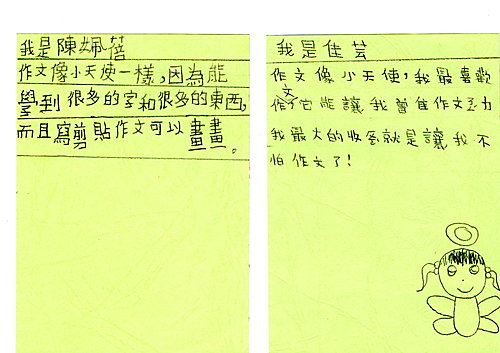 我是陳姵蓓
作文像小天使一樣,因為能
學到很多的字和很多的東西,
而且寫剪貼作文可以畫畫。
我是佳芸
作文像小天使,我最喜歡
作文它能讓我增進作文功力
我最大的收穫就是讓我不
怕作文了!